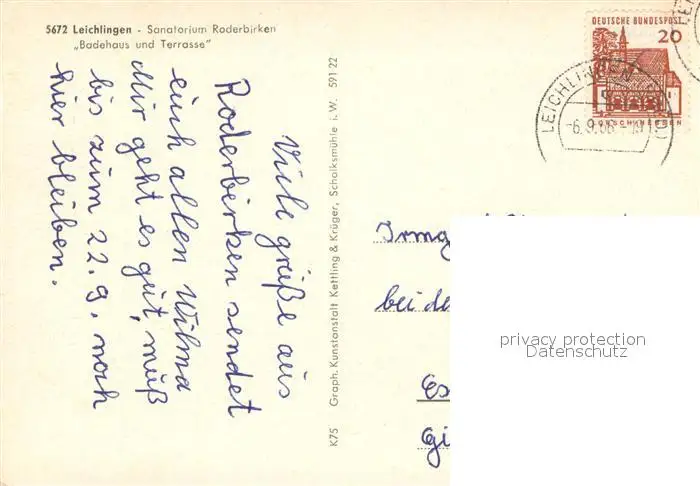 5672 Leichlingen - Sanatorium Roderbirken
„Badehaus und Terrasse"
Viele grüße aus
Roderbirken sendet
euch allen Wilma
Mir geht es gut, muß
bis zum 22.9. noch
hier bleiben.
K75 Graph. Kunstanstalt Kettling & Krüger, Schalksmühle i. W. 591/22
DEUTSCHE BUNDESPOST
20
LORSCH/HESSEN
LEICHLINGEN
-6.9.66.-
Irmg
bei de
Es
Gi
privacy protection
Datenschutz